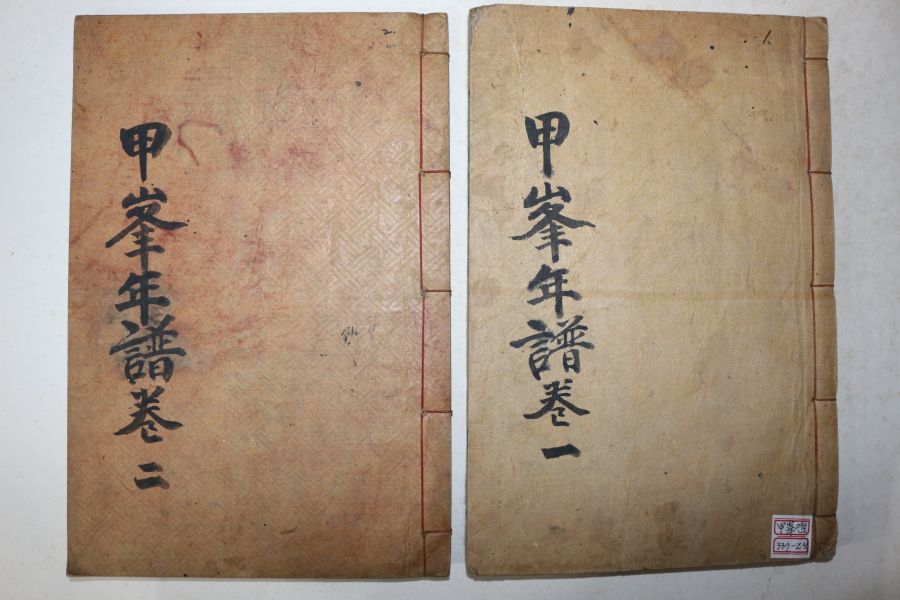 甲峯年譜卷一
甲峯年譜卷二
甲峯
337-2